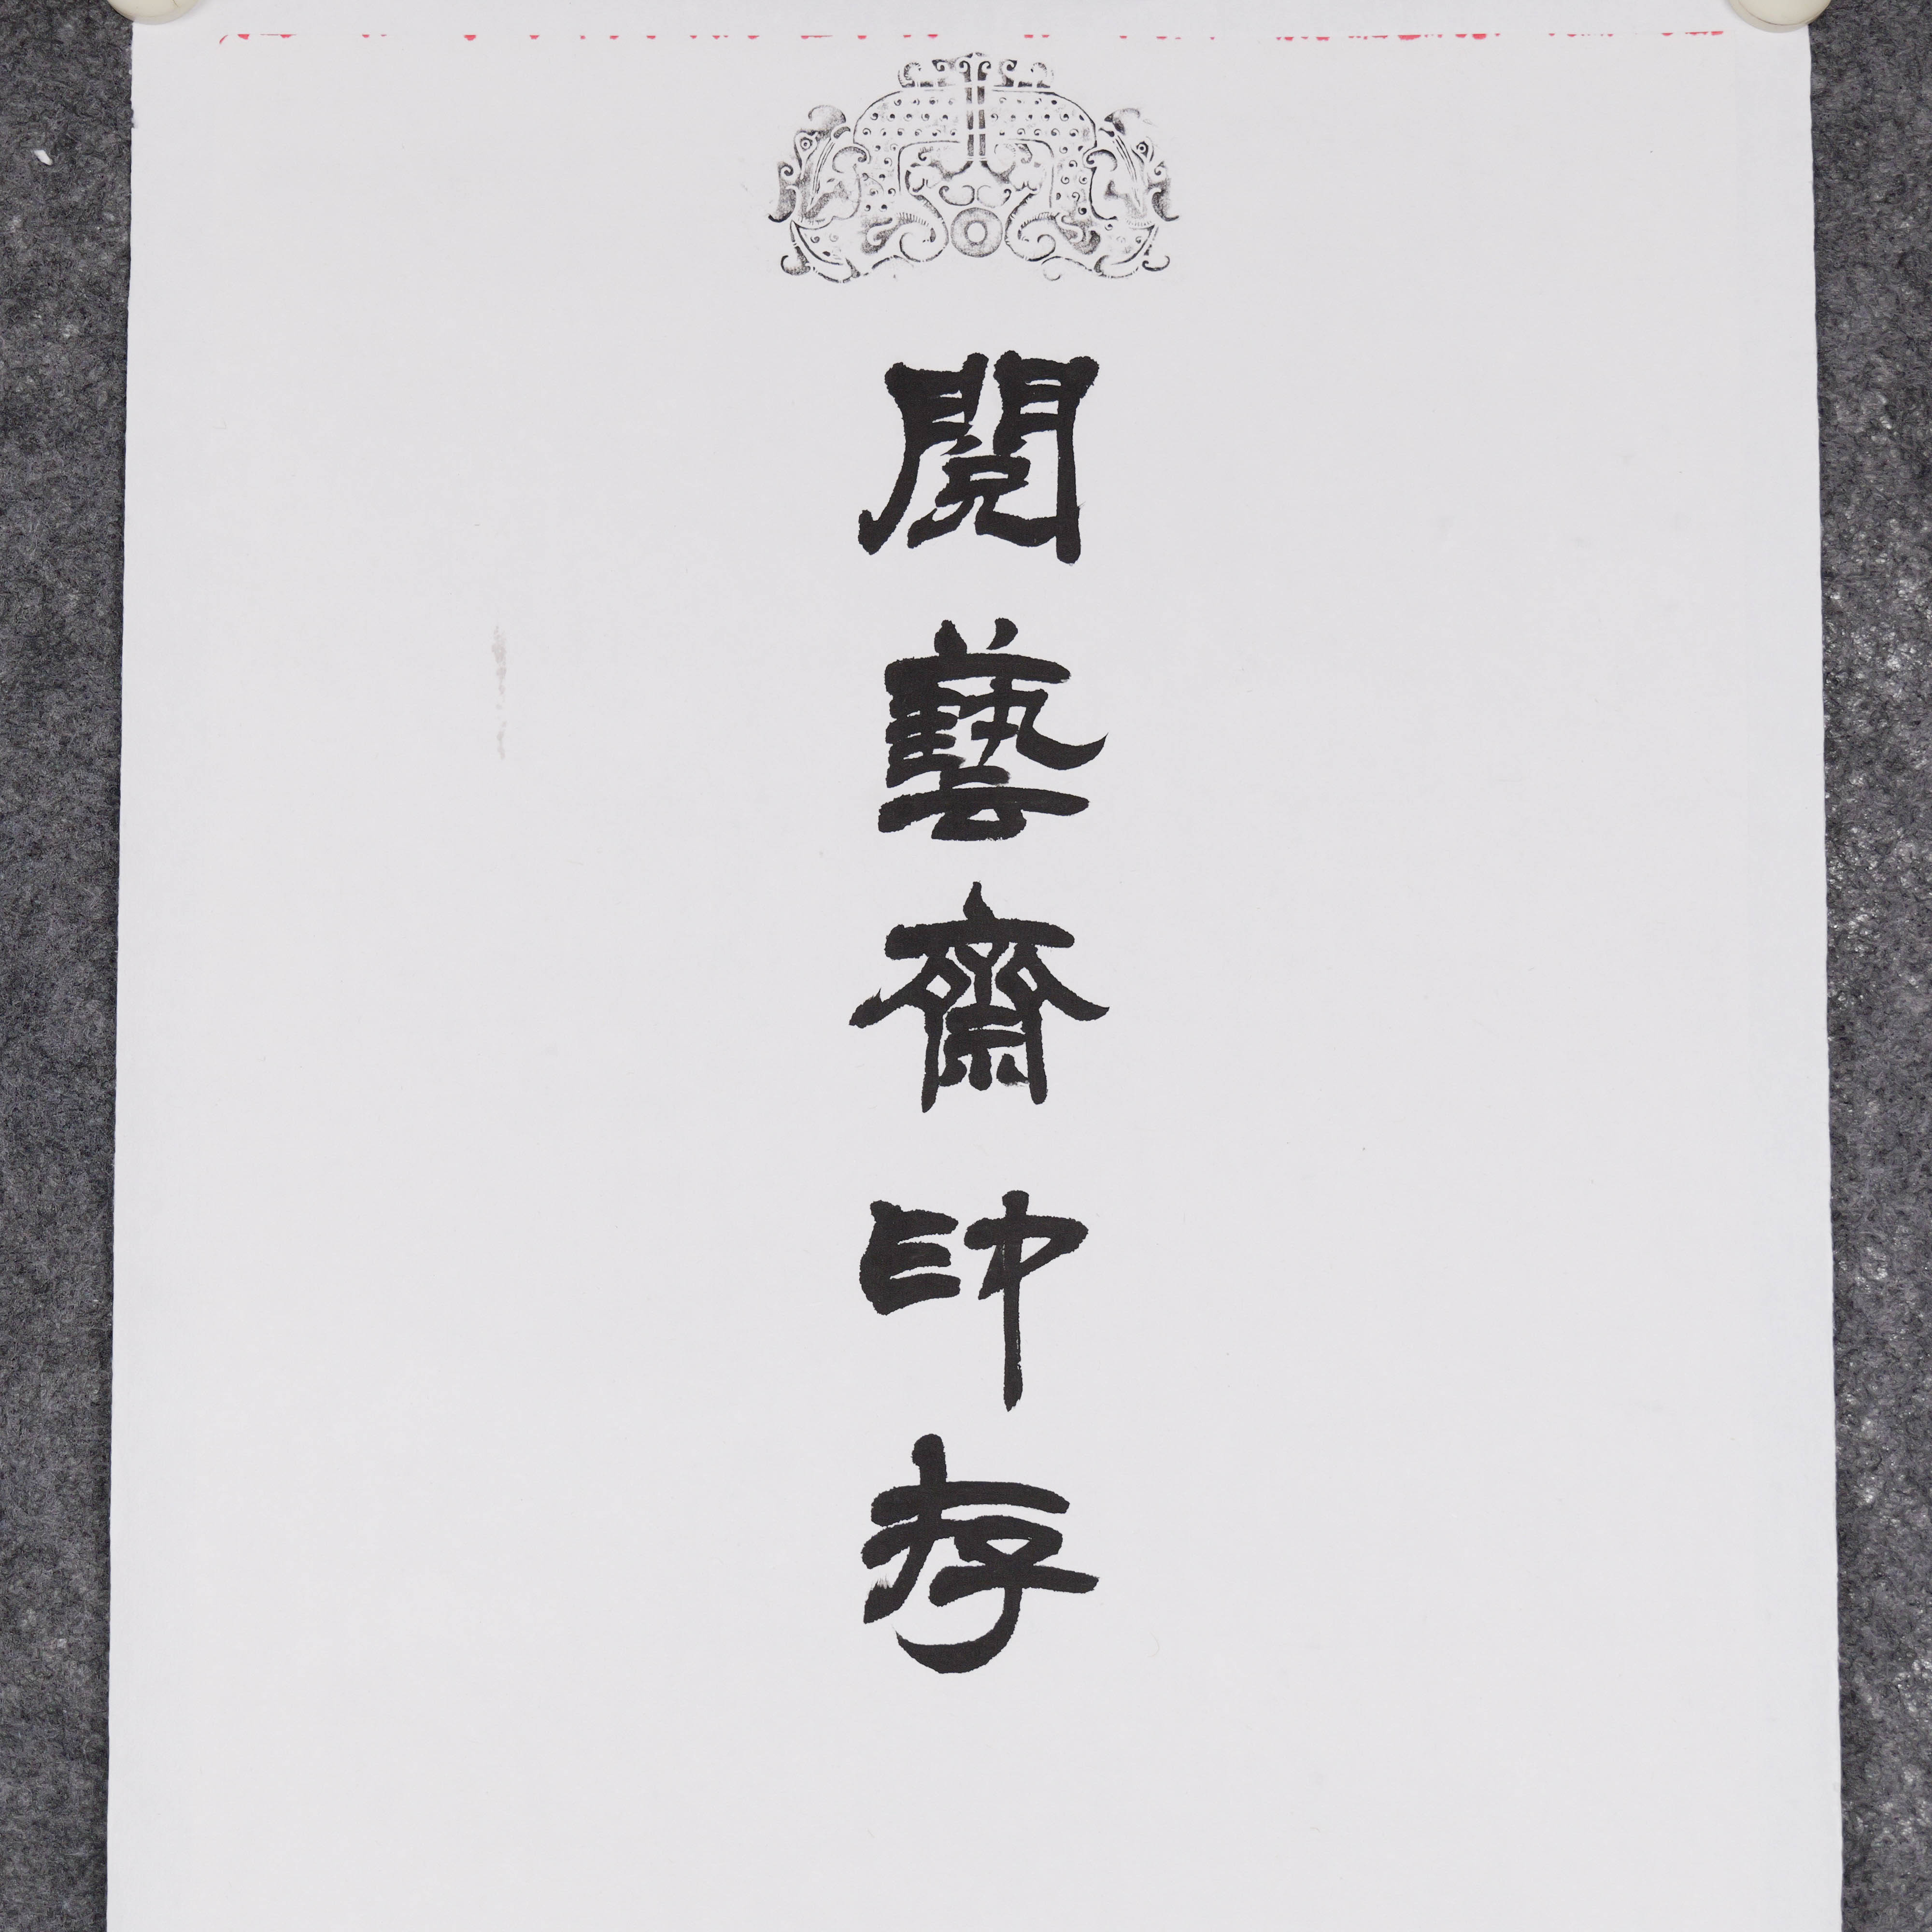 閲藝齋印存